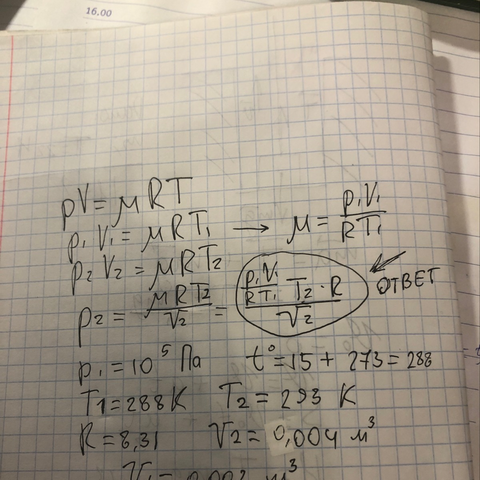 16.00
pV = μRT
p₁V₁ = μRT₁ → μ = p₁V₁/RT₁
p₂V₂ = μRT₂
p₂ = μRT₂/V₂ = (p₁V₁/RT₁ T₂ · R)/V₂ ОТВЕТ
p₁ = 10⁵ Па t° = 15 + 273 = 288
T₁ = 288 K T₂ = 293 K
R = 8,31 V₂ = 0,004 м³